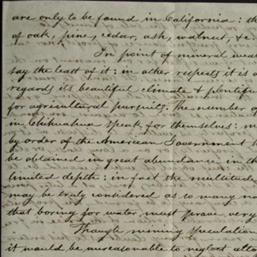 are only to be found in California: th
of oak, pine, cedar, ash, walnut, &c
In point of mineral wea
say the least of it: in other respects it is a
regards its beautiful climate & plentifu
for agricultural pursuits. The number o
in Chihuahua speak for themselves: m
by order of the American Government
be obtained in great abundance in th
limited depth; in fact the multitude
may be truly considered as so many na
that boring for water must prove very
Though mining speculation
it would be unreasonable to neglect atte